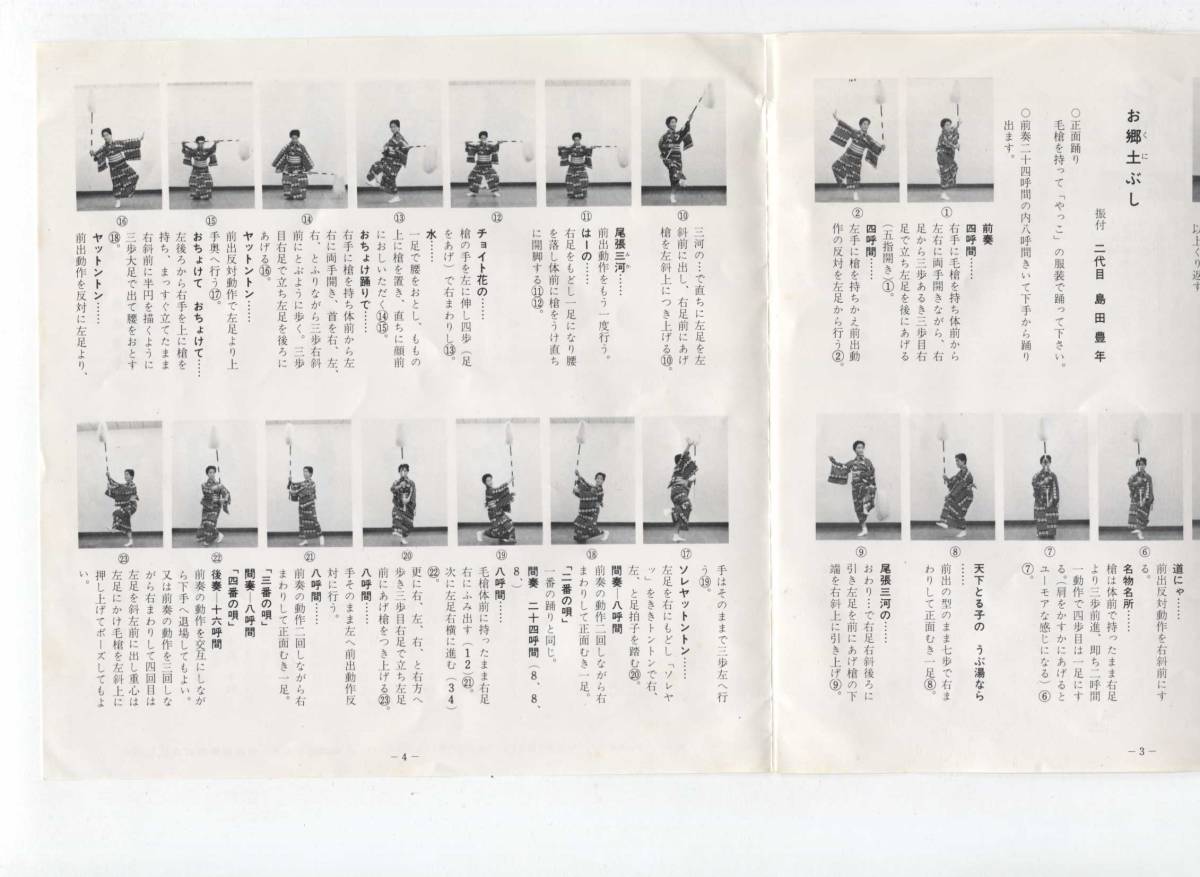 以上くり返す
お郷土ぶし
くに
振付　二代目　島田豊年
○正面踊り
毛槍を持って「やっこ」の服装で踊って下さい。
○前奏二十四呼間の内八呼間きいて下手から踊り
出ます。
前奏
四呼間……
右手に毛槍を持ち体前から
左右に両手開きながら、右
足から三歩あるき三歩目右
足で立ち左足を後にあげる
（五指開き）①。
四呼間……
左手に槍を持ちかえ前出動
作の反対を左足から行う②。
①
②
⑥
⑦
⑧
⑨
道にゃ……
前出反対動作を右斜前にす
る。
名物名所……
槍は体前で持ったまま右足
より三歩前進、即ち二呼間
一動作で四歩目は一足にす
る（肩をかすかにあげると
ユーモアな感じになる）⑥
⑦。
天下とる子の　うぶ湯なら
……
前出の型のまま七歩で右ま
わりして正面むき一足⑧。
尾張三河の……
おわり…で右足右斜後ろに
引き左足を前にあげ槍の下
端を右斜上に引き上げ⑨。
－3－
⑩
⑪
⑫
⑬
⑭
⑮
⑯
三河の…で直ちに左足を左
斜前に出し、右足前にあげ
槍を左斜上につき上げる⑩。
尾張三河……
前出動作をもう一度行う。
はーの……
右足をもどし一足になり腰
を落し体前に槍をうけ直ち
に開脚する⑪⑫。
チョイト花の……
槍の手を左に伸し四歩（足
をあげ）で右まわりし⑬。
水……
一足で腰をおとし、ももの
上に槍を置き、直ちに顔前
においしいただく⑭⑮。
おちょけ踊りで……
右手に槍を持ち体前から左
右に両手開き、首を右、左、
右、とふりながら三歩右斜
前にとぶように歩く。三歩
目右足で立ち左足を後ろに
あげる⑯。
ヤットントン……
前出反対動作で左足より上
手奥へ行う⑰。
おちょけて　おちょけて……
左後ろから右手を上に槍を
持ち、まっすぐ立てたまま
右斜前に半円を描くように
三歩大足で出て腰をおとす
⑱。
ヤットントン……
前出動作を反対に左足より、
⑰
⑱
⑲
⑳
㉑
㉒
㉓
手はそのままで三歩左へ行
う⑲。
ソレヤットントン……
左足を右にもどし「ソレヤ
ッ」をききトントンで右、
左、と足拍子を踏む⑳。
間奏―八呼間
前奏の動作二回しながら右
まわりして正面むき一足。
「二番の唄」
一番の踊りと同じ。
間奏　二十四呼間（8、8、
8、）
八呼間……
毛槍体前に持ったまま右足
右にふみ出す（12）㉑。
次に左足右横に進む（34）
㉒。
更に右、左、右、と右方へ
歩き三歩目右足で立ち左足
前にあげ槍をつき上げる㉓。
八呼間……
手そのまま左へ前出動作反
対に行う。
八呼間……
前奏の動作二回しながら右
まわりして正面むき一足。
「三番の唄」
間奏―八呼間
「四番の唄」
後奏―十六呼間
前奏の動作を交互にしなが
ら下手へ退場してもよい。
又は前奏の動作を三回しな
がら右まわりして四回目は
左足を斜左前に出し重心は
左足にかけ毛槍を左斜上に
押し上げてポーズしてもよ
い。
－4－